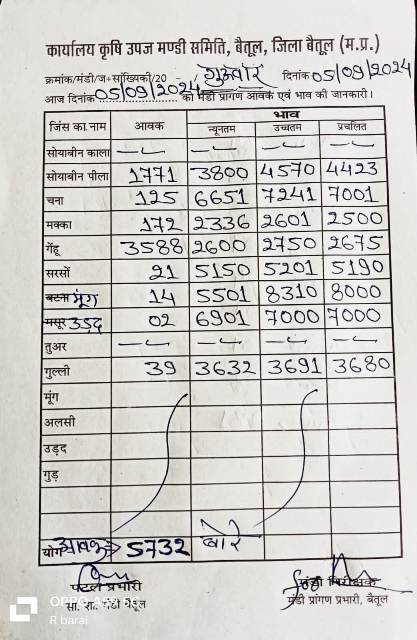 कार्यालय कृषि उपज मण्डी समिति, बैतूल, जिला बैतूल (म.प्र.)
क्रमांक/मंडी/ज+सांख्यिकी/20 - गुरूवार दिनांक 05/09/2024
आज दिनांक 05/09/2024 को मंडी प्रांगण आवक एवं भाव की जानकारी।
जिंस का नाम आवक भाव
न्यूनतम उच्चतम प्रचलित
सोयाबीन काला -- -- -- --
सोयाबीन पीला 1771 3800 4570 4423
चना 125 6651 7241 7001
मक्का 172 2336 2601 2500
गेंहू 3588 2600 2750 2675
सरसों 21 5150 5201 5190
बटना मूंग 14 5501 8310 8000
मसूर उड़द 02 6901 7000 7000
तुअर -- -- -- --
गुल्ली 39 3632 3691 3680
मूंग
अलसी
उड़द
गुड़
योग आवक 5732 बोरे
पटल प्रभारी मंडी निरीक्षक
सा. शा. मंडी बैतूल मंडी प्रांगण प्रभारी, बैतूल
OPPO
R barai